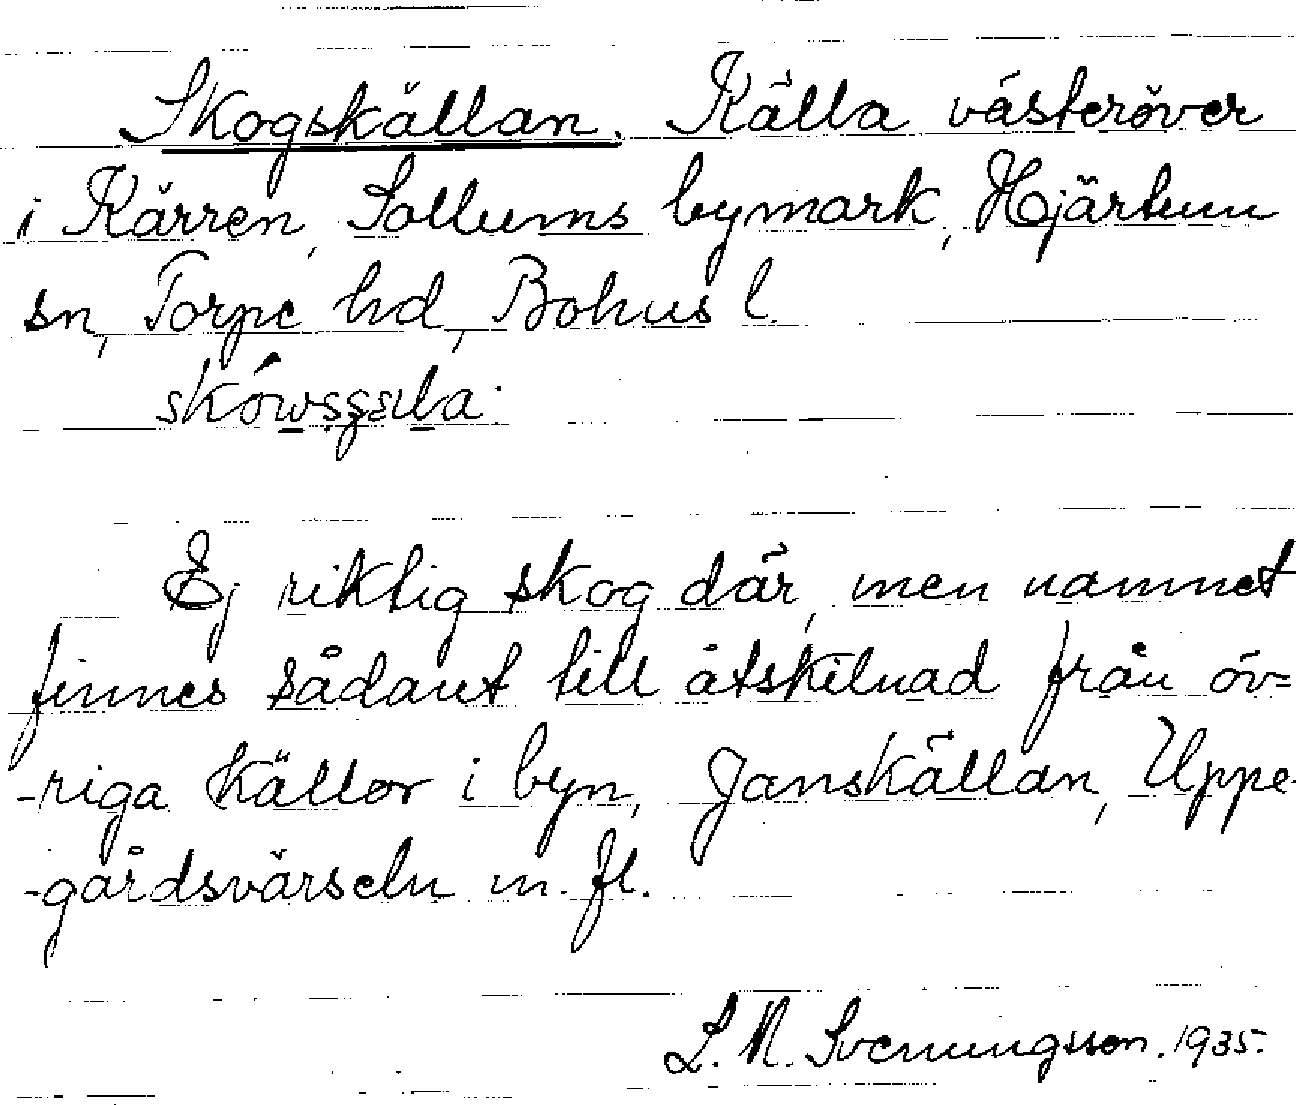 Skogskällan. Källa västeröver
i Kärren, Sollums bymark, Hjärtum
sn, Torpe hd, Bohus l.
Ej riktig skog där, men namnet
finnes sådant till åtskilnad från öv=
-riga källor i byn, Janskällan, Uppe-
-gårdsvärseln m. fl.
L. N. Svenungsson. 1935.